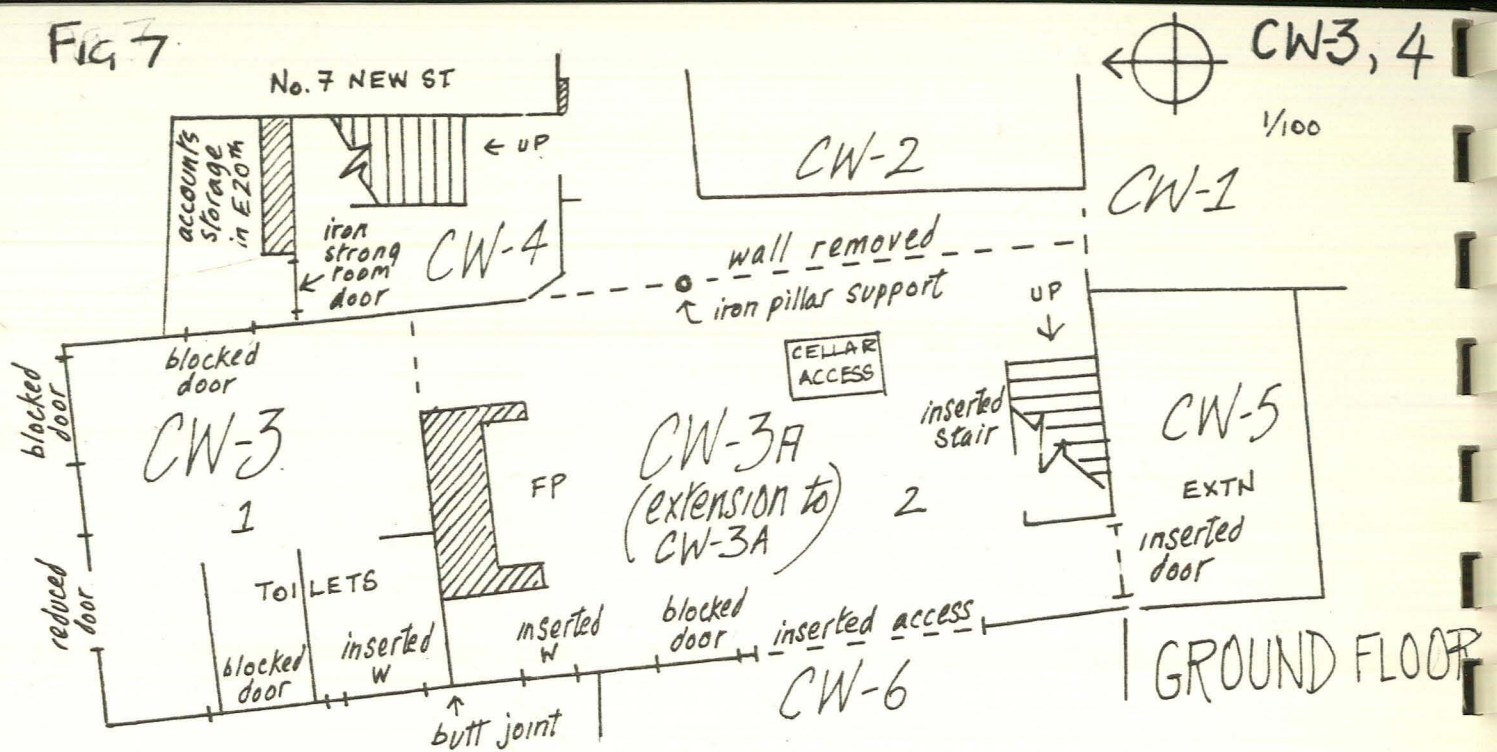 FIG 7
CW-3, 4
1/100
No. 7 NEW ST
← UP
accounts
storage
in E20th
iron
strong
room
door
CW-4
CW-2
CW-1
wall removed
iron pillar support
UP
CELLAR
ACCESS
blocked
door
blocked
door
CW-3
1
FP
CW-3A
(extension to)
CW-3A
2
inserted
stair
CW-5
EXTN
inserted
door
reduced
door
TOILETS
blocked
door
inserted
W
inserted
W
blocked
door
inserted access
CW-6
butt joint
GROUND FLOOR